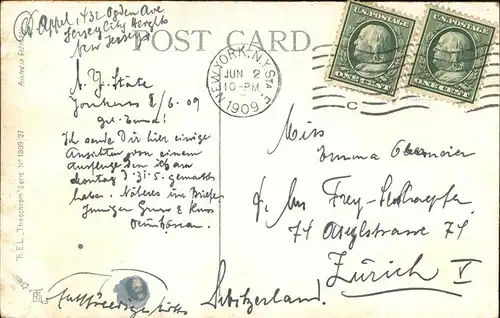 Appel, 1432 Ogden Ave
Jersey City Heights
New Jersey
POST CARD
U.S. POSTAGE
ONE CENT
U.S. POSTAGE
ONE CENT
NEW YORK, N.Y. STA. E
JUN 2
10-PM
1909
N.Y. State
Yonkers 2/6.09
Ich sende Dir hier einige
Ansichten von einem
Ausfluge den ich am
Montag d 31.5. gemacht
habe. Näheres im Briefe.
Inniger Gruss & Kuss
Miss
Emma
Frey-
74 Asylstrasse 74
Zürich V
Switzerland.
"Theochrom" Serie No 1809/27